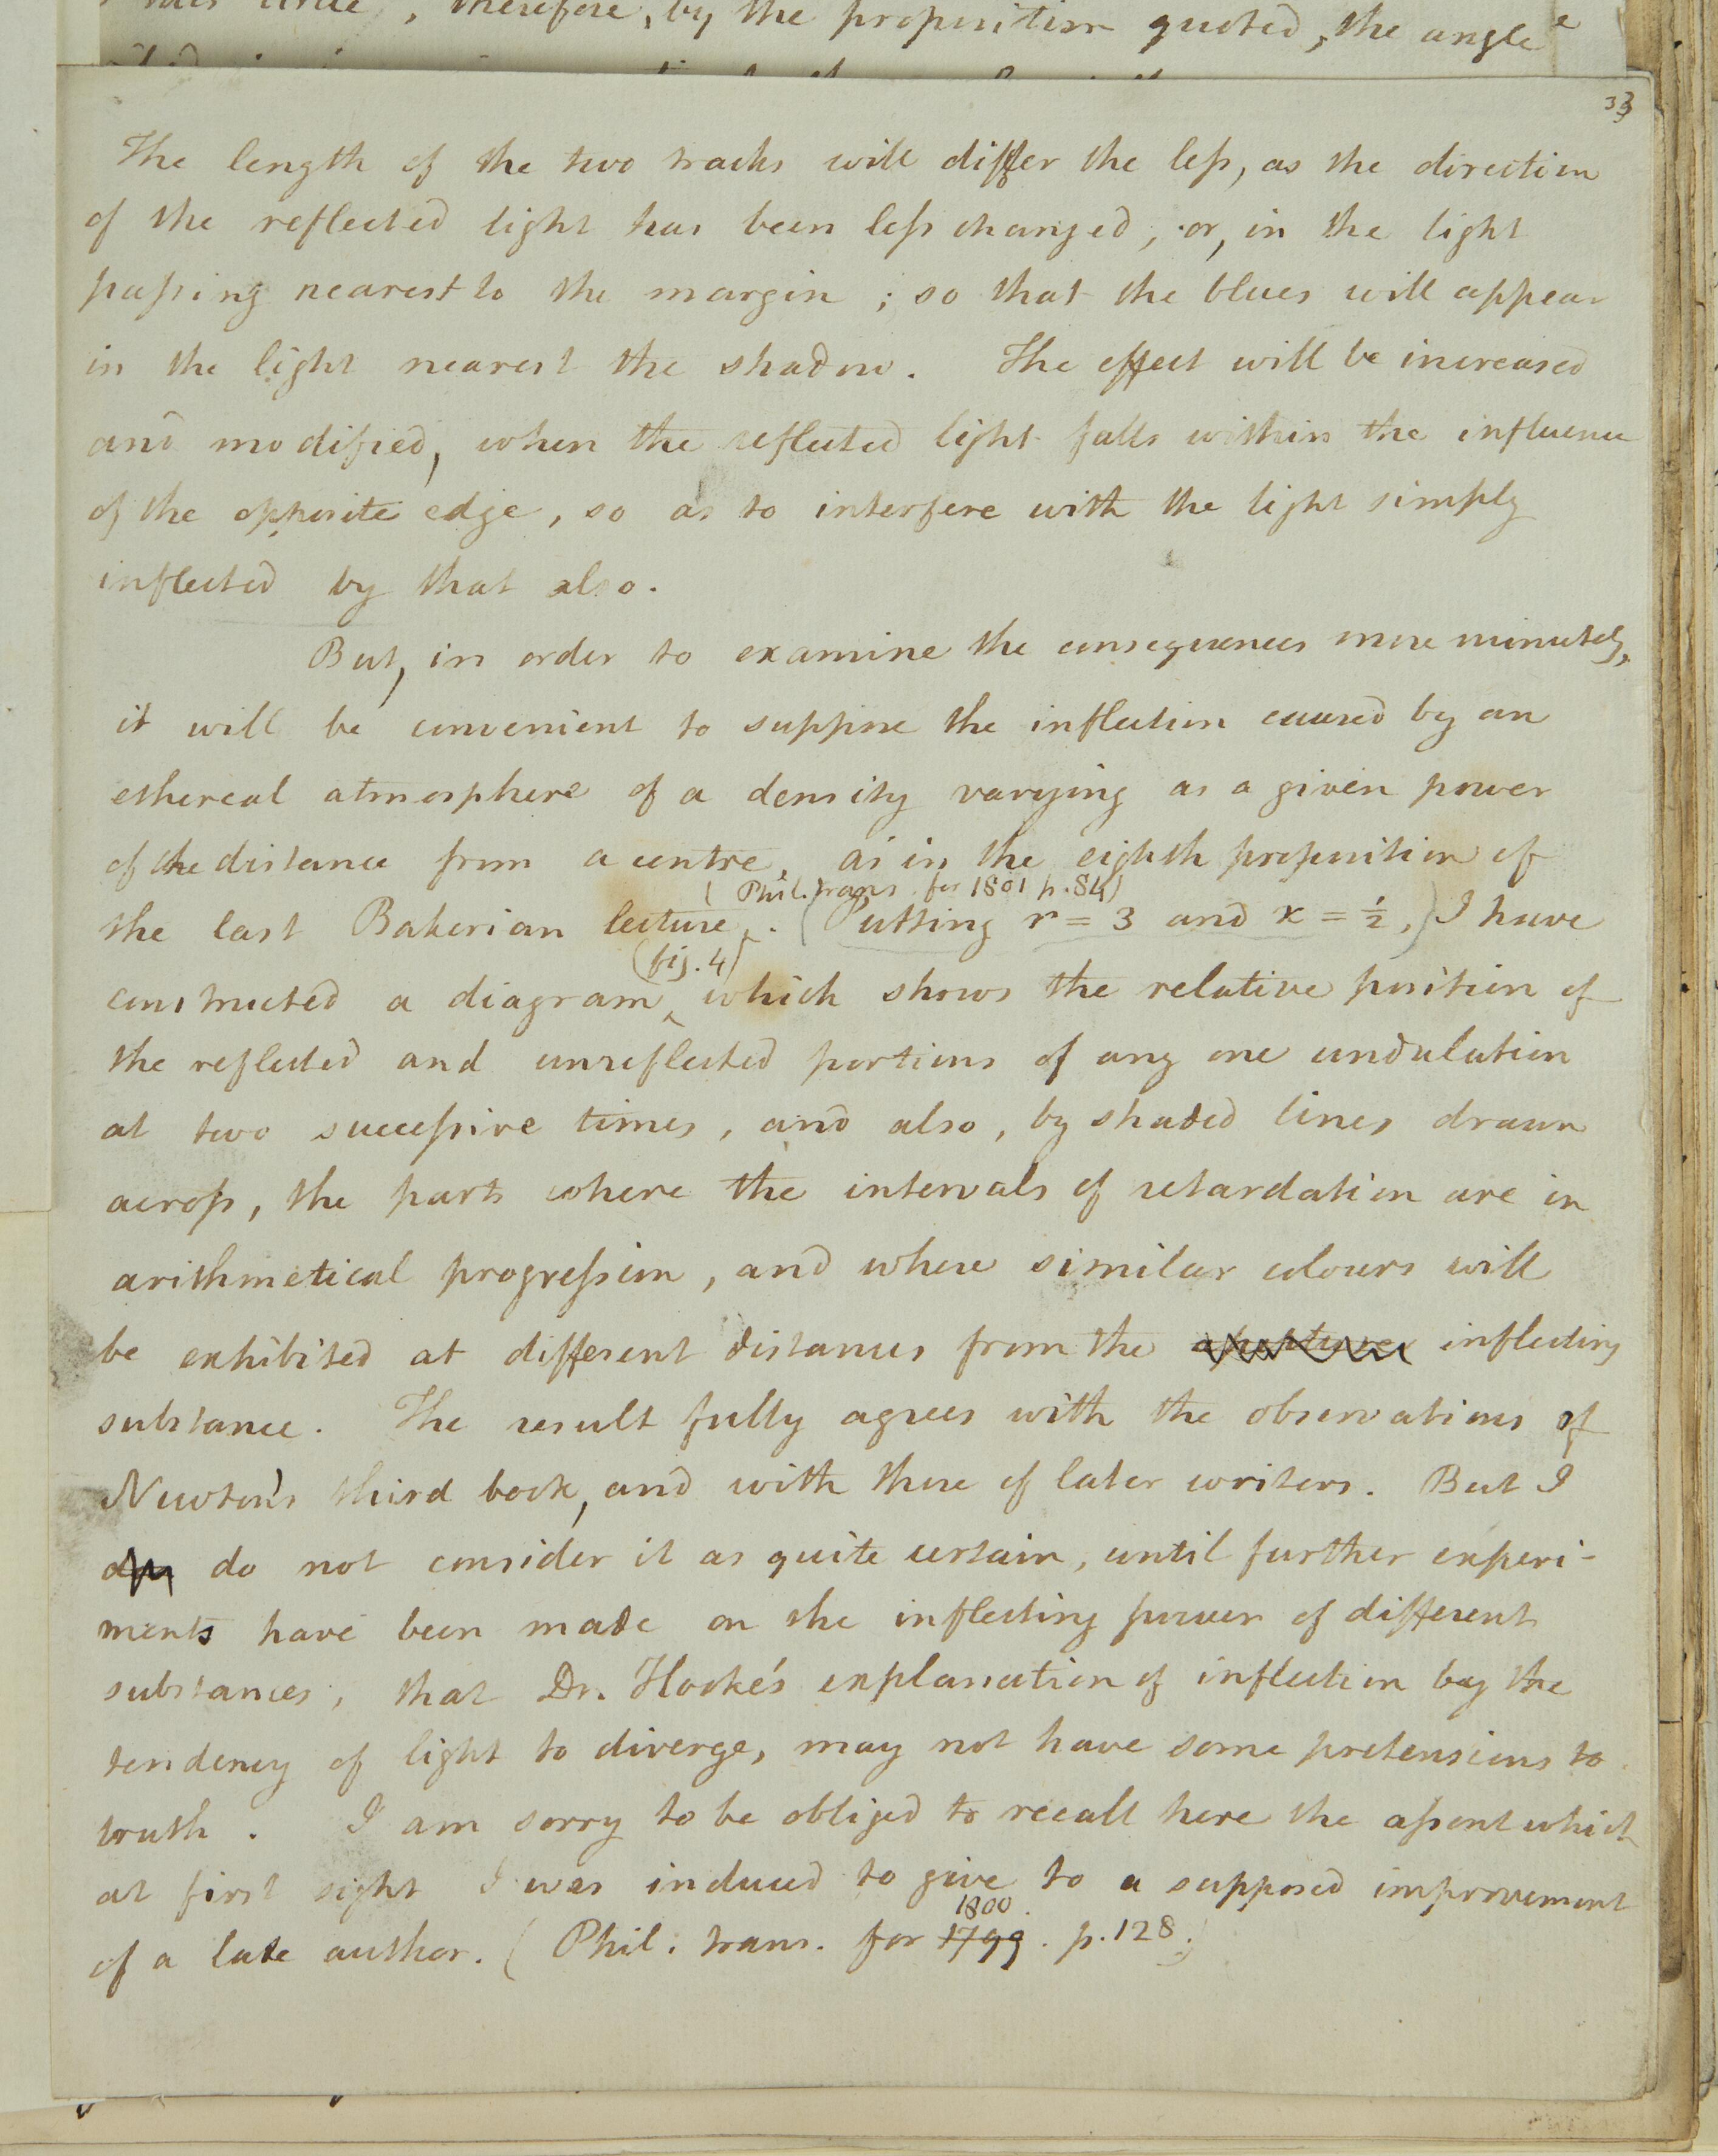 therefore, by the proposition quoted, the angle
33
The length of the two tracks will differ the leſs, as the direction
of the reflected light has been leſs changed, or, in the light
paſsing nearest to the margin ; so that the blues will appear
in the light nearest the shadow. The effect will be increased
and modified, when the reflected light falls within the influence
of the opposite edge, so as to interfere with the light simply
inflected by that also.
But, in order to examine the consequences more minutely,
it will be convenient to suppose the inflection caused by an
ethereal atmosphere of a density varying as a given power
of the distance from a centre, as in the eighth proposition of
( Phil. trans. for 1801 p. 84)
the last Bakerian lecture. (Putting r = 3 and x = ½,) I have
(fig. 4)
constructed a diagram, which shows the relative position of
the reflected and unreflected portions of any one undulation
at two succeſsive times, and also, by shaded lines drawn
acroſs, the parts where the intervals of retardation are in
arithmetical progreſsion, and where similar colours will
be exhibited at different distances from the inflecting
substance. The result fully agrees with the observations of
Newton's third book, and with those of later writers. But I
do not consider it as quite certain, until further experi-
ments have been made on the inflecting power of different
substances, that Dr. Hooke's explanation of inflection by the
tendency of light to diverge, may not have some pretensions to
truth. I am sorry to be obliged to recall here the aſsent which
at first sight I was induced to give to a supposed improvement
1800.
of a late author. ( Phil. trans. for 1799. p. 128.)